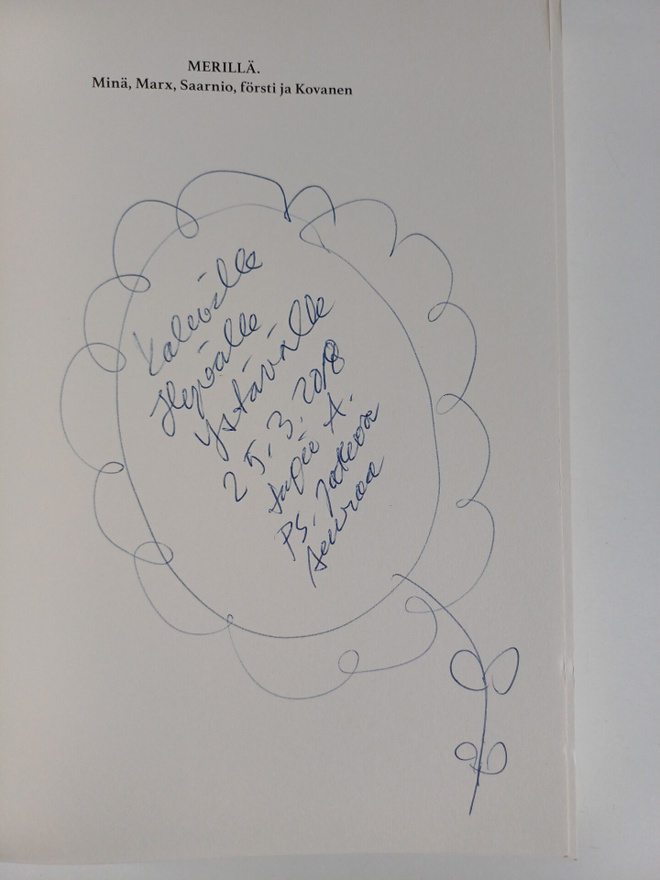 MERILLÄ.
Minä, Marx, Saarnio, försti ja Kovanen
Kalevalle
Hyvälle
ystävälle
25.3.2018
A.
PS. Jatkoa
seuraa